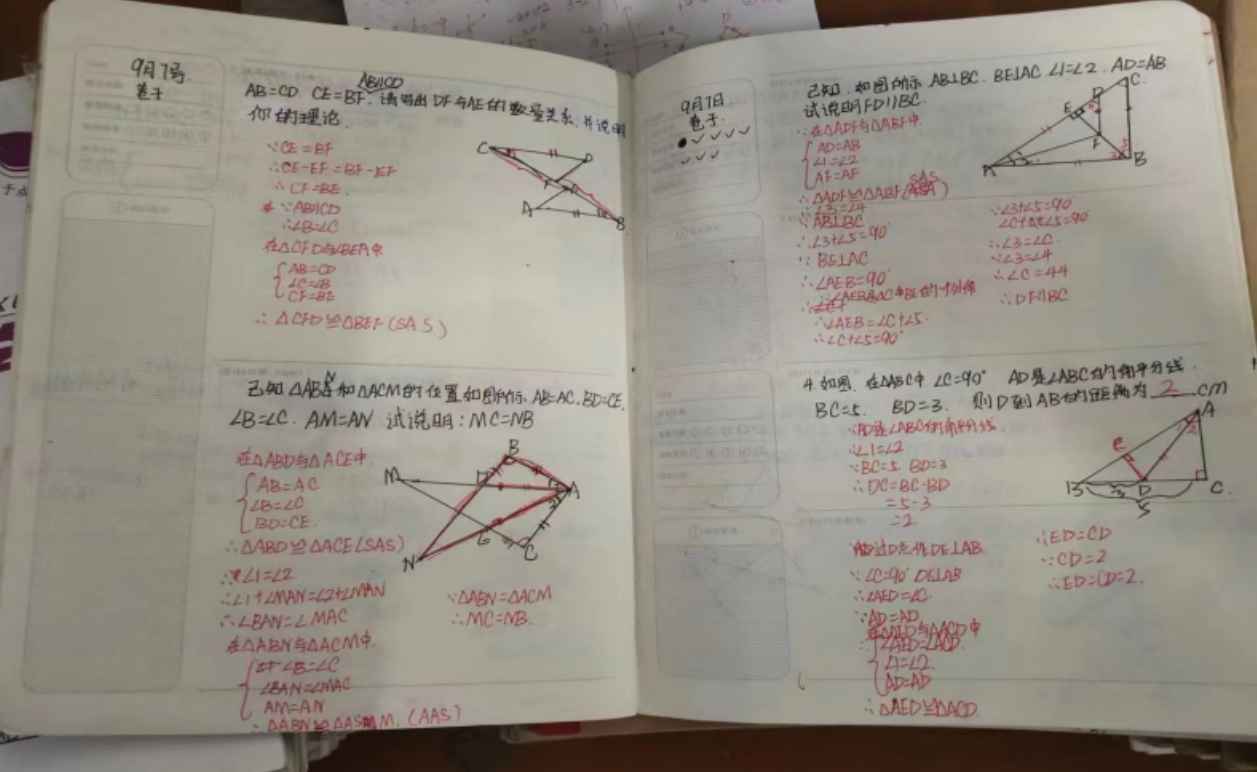 9月7号
卷子
AB∥CD
AB=CD CE=BF. 请写出DF与AE的数量关系,并说明
你的理论.
∵CE=BF
∴CE-EF=BF-EF
∴CF=BE
∵AB∥CD
∴∠B=∠C
在△CFD与△BEA中
AB=CD
∠C=∠B
CF=BE
∴△CFD≌△BEF(SAS)
C
D
F
A
B
已知△ABN和△ACM的位置如图所示 AB=AC. BD=CE.
∠B=∠C. AM=AN 试说明:MC=NB
在△ABD与△ACE中.
AB=AC
∠B=∠C
BD=CE.
∴△ABD≌△ACE(SAS)
∴∠1=∠2
∴∠1+∠MAN=∠2+∠MAN
∴∠BAN=∠MAC
在△ABN与△ACM中.
∠B=∠C
∠BAN=∠MAC
AM=AN
(AAS)
∵△ABN=△ACM
∴MC=NB.
B
M
A
N
C
9月7日
卷子.
已知.如图所示 AB⊥BC. BE⊥AC. ∠1=∠2. AD=AB
试说明FD∥BC.
∵在△ADF与△ABF中.
AD=AB
∠1=∠2
AF=AF
SAS
∴△ADF≌△ABF
∴∠3=∠4
∵AB⊥BC
∴∠3+∠5=90°
∵BE⊥AC
∴∠AEB=90°
∴∠AEB=∠C+∠5.
∴∠C+∠5=90°
∵∠3+∠5=90°
∠C+∠5=90°
∴∠3=∠C.
∵∠3=∠4
∴∠C=∠4
∴DF∥BC
C.
D
E
F
A
B
4.如图.在△ABC中 ∠C=90° AD是∠ABC的角平分线.
BC=5. BD=3. 则D到AB的距离为 2 cm
∵AD是∠ABC的角平分线.
∴∠1=∠2
∵BC=5 BD=3
∴DC=BC-BD
=5-3
=2
过D点作DE⊥AB
∵∠C=90° DE⊥AB
∴∠AED=∠C
∵AD=AD.
在△AED与△ACD中
∠AED=∠ACD.
∠1=∠2.
AD=AD
∴△AED≌△ACD.
∴ED=CD
∵CD=2
∴ED=CD=2.
A
1
2
e
B
3
D
C.
5